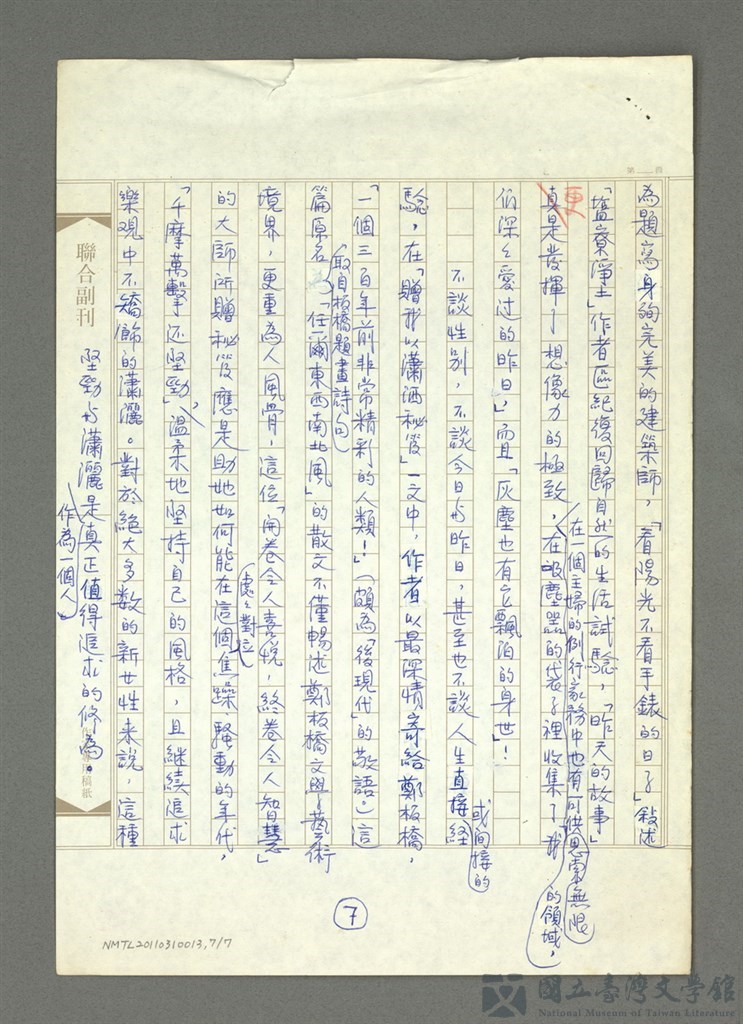 第 頁
為題寫身殉完美的建築師，「看陽光不看手錶的日子」敘述
「塩寮淨土」作者區紀復回歸自然的生活試驗，「昨天的故事」
更
真是發揮了想像力的極致，在吸塵器的袋子裡收集了「我
在一個主婦的例行家務中也有可供思索無限的領域，
們深々愛過的昨日」，而且「灰塵也有它飄泊的身世」！
不談性別，不談今日与昨日，甚至也不談人生直接經
或間接的
驗，在「贈我以瀟洒秘笈」一文中，作者以最深情，寄給鄭板橋，
「一個三百年前非常精彩的人類！」（頗為「後現代」的敬語。）這
篇原名「任爾東西南北風」的散文不僅暢述鄭板橋文學藝術
取自板橋題畫詩句
境界，更重為人風骨，這位「開卷令人喜悅，終卷令人智慧」
的大師所贈秘笈應是助她如何能在這個焦躁騷動的年代，
處々對立
「千摩萬擊还堅勁」，溫柔地堅持自己的風格，且継續追求
樂观中不矯飾的瀟灑。對於絕大多数的新女性來說，這種
堅勁与瀟灑是真正值得追求的修為。
作為一個人，
聯合副刊
7
NMTL20110310013,7/7
國立臺灣文學館
National Museum of Taiwan Literature